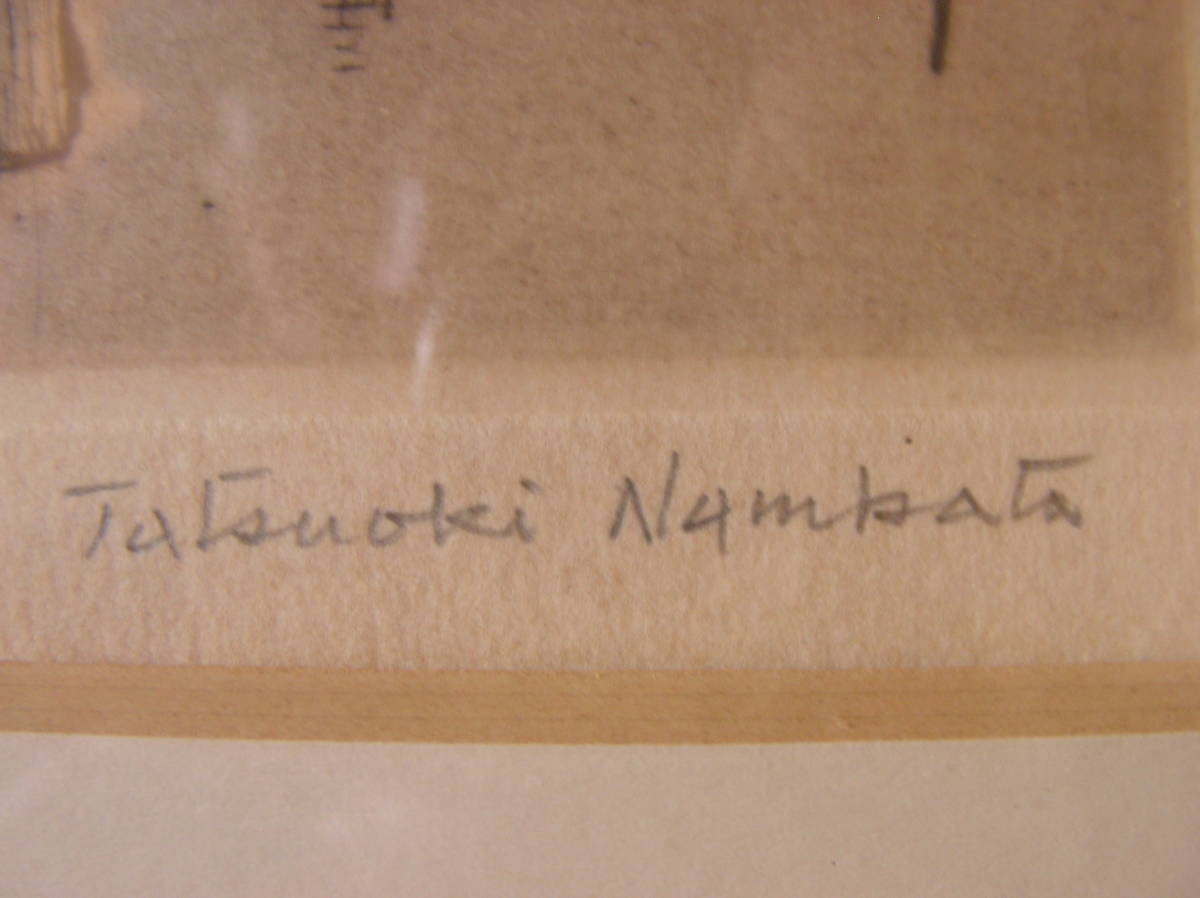 Tatsuoki Nambata